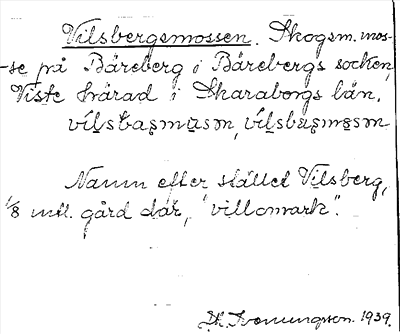 Vilsbergsmossen. Skogsm. mos-
-se på Bäreberg i Bärebergs socken,
Viste härad i Skaraborgs län.
Namn efter stället Vilsberg,
1/8 mtl. gård där, "villomark".
1939.